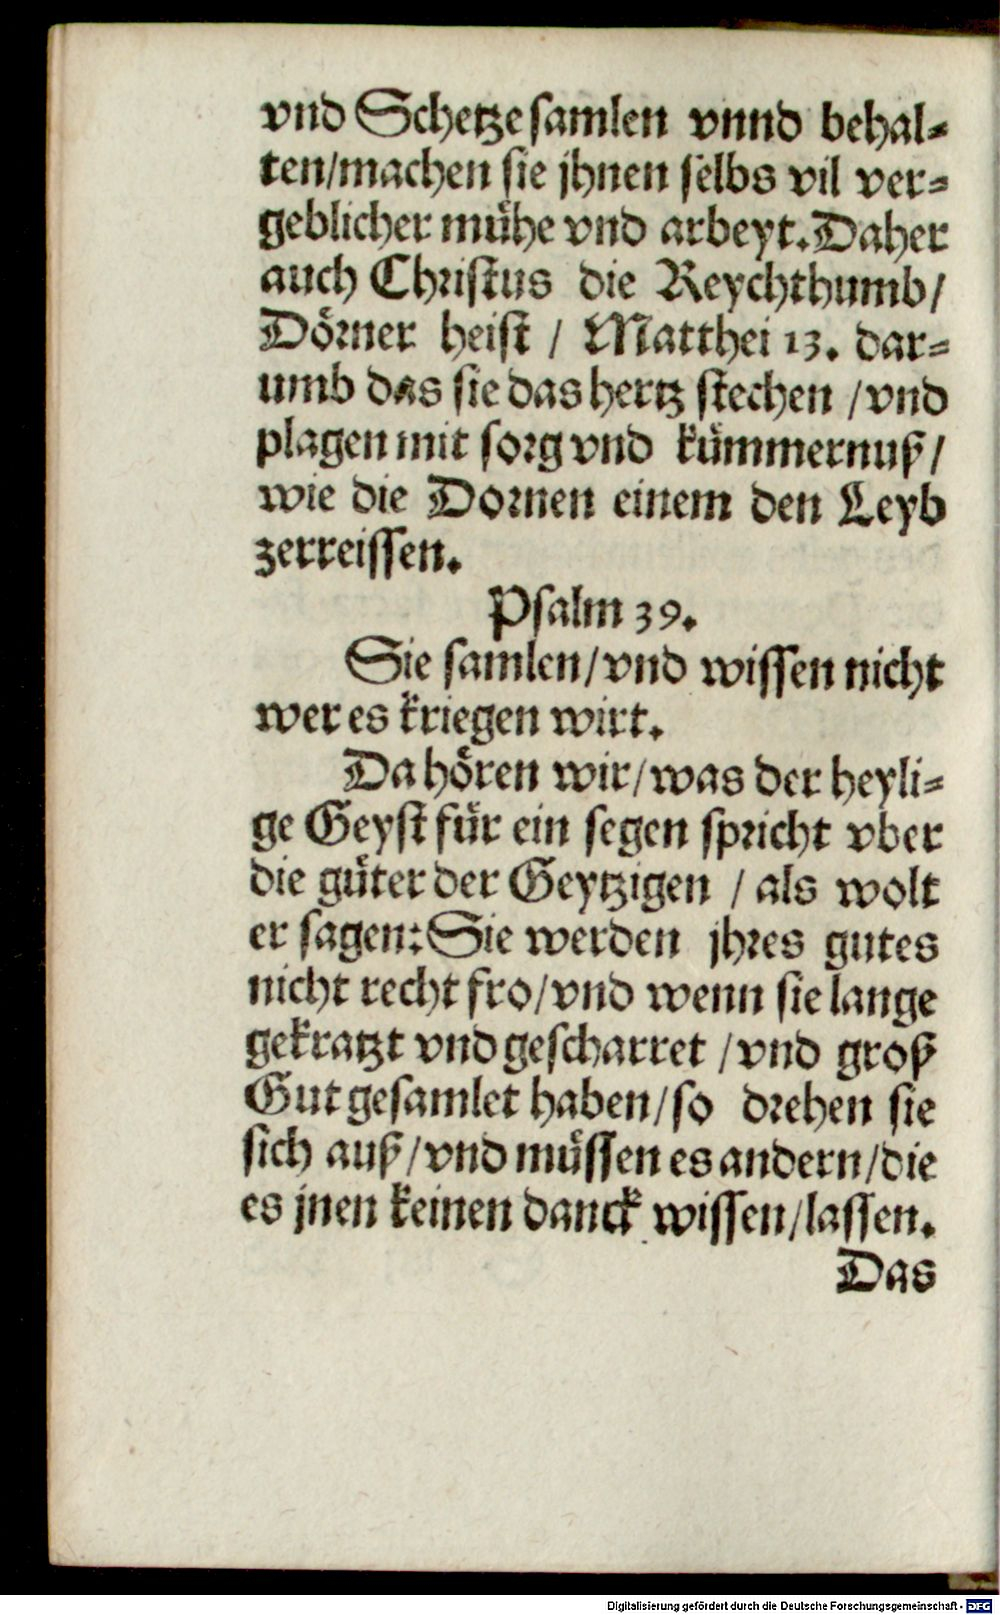 vnd Schetze samlen vnnd behal-
ten/machen sie jhnen selbs vil ver-
geblicher mühe vnd arbeyt. Daher
auch Christus die Reychthumb/
Dörner heist / Matthei 13. dar-
umb das sie das hertz stechen /vnd
plagen mit sorg vnd kümmernuß/
wie die Dornen einem den Leyb
zerreissen.
Psalm 39.
Sie samlen/vnd wissen nicht
wer es kriegen wirt.
Da hören wir/was der heyli-
ge Geyst für ein segen spricht vber
die güter der Geytzigen / als wolt
er sagen: Sie werden jhres gutes
nicht recht fro/vnd wenn sie lange
gekratzt vnd gescharret /vnd groß
Gut gesamlet haben/so drehen sie
sich auß/vnd müssen es andern/die
es jnen keinen danck wissen/lassen.
Das
Digitalisierung gefördert durch die Deutsche Forschungsgemeinschaft - DFG